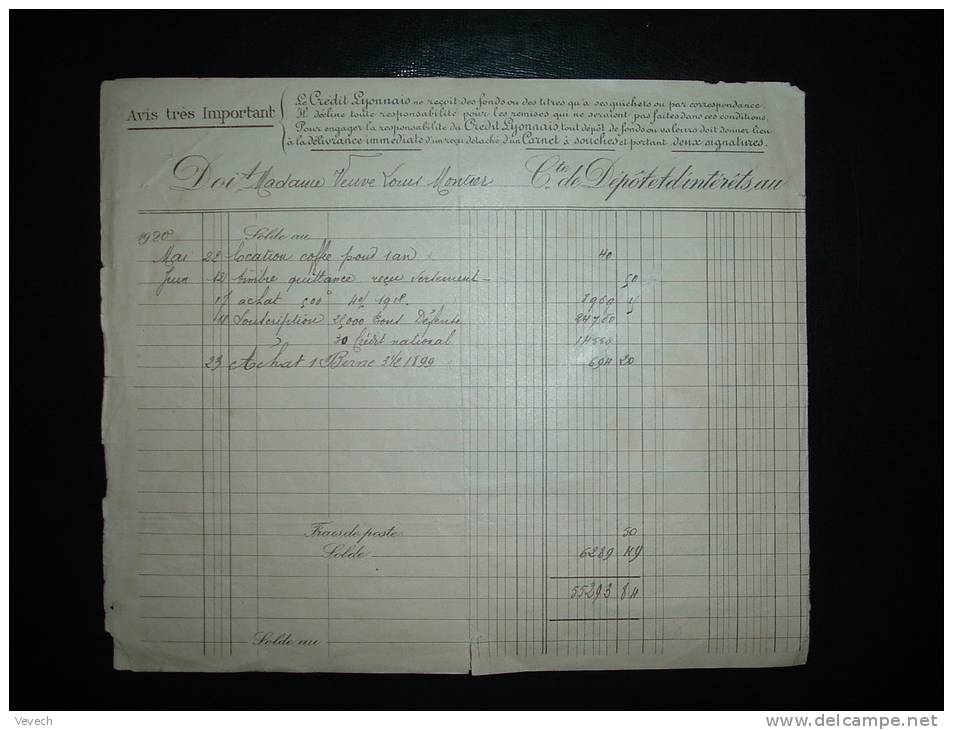 Avis très Important
Le Crédit Lyonnais ne reçoit des fonds ou des titres qu'à ses guichets ou par correspondance.
Il décline toute responsabilité pour les remises qui ne seraient pas faites dans ces conditions.
Pour engager la responsabilité du Crédit Lyonnais, tout dépôt de fonds ou valeurs doit donner lieu
à la délivrance immédiate d'un reçu détaché d'un Carnet à souches et portant deux signatures.
Doit Madame Veuve Louis Montier Cte de Dépôt et d'intérêts au
1920 Solde au
Mai 22 location coffre 1 an 40
Juin 12 timbre quittance reçu versement 50
achat 500 4% 1918.
Souscription 25000 Bons Défense 24750
30 Crédit national 14550
23 Achat 1 Berne 3 1/2 1899 694 20
Frais de poste 50
Solde 6289 49
55293 84
Solde au
Vevech
http://www.delcampe.net